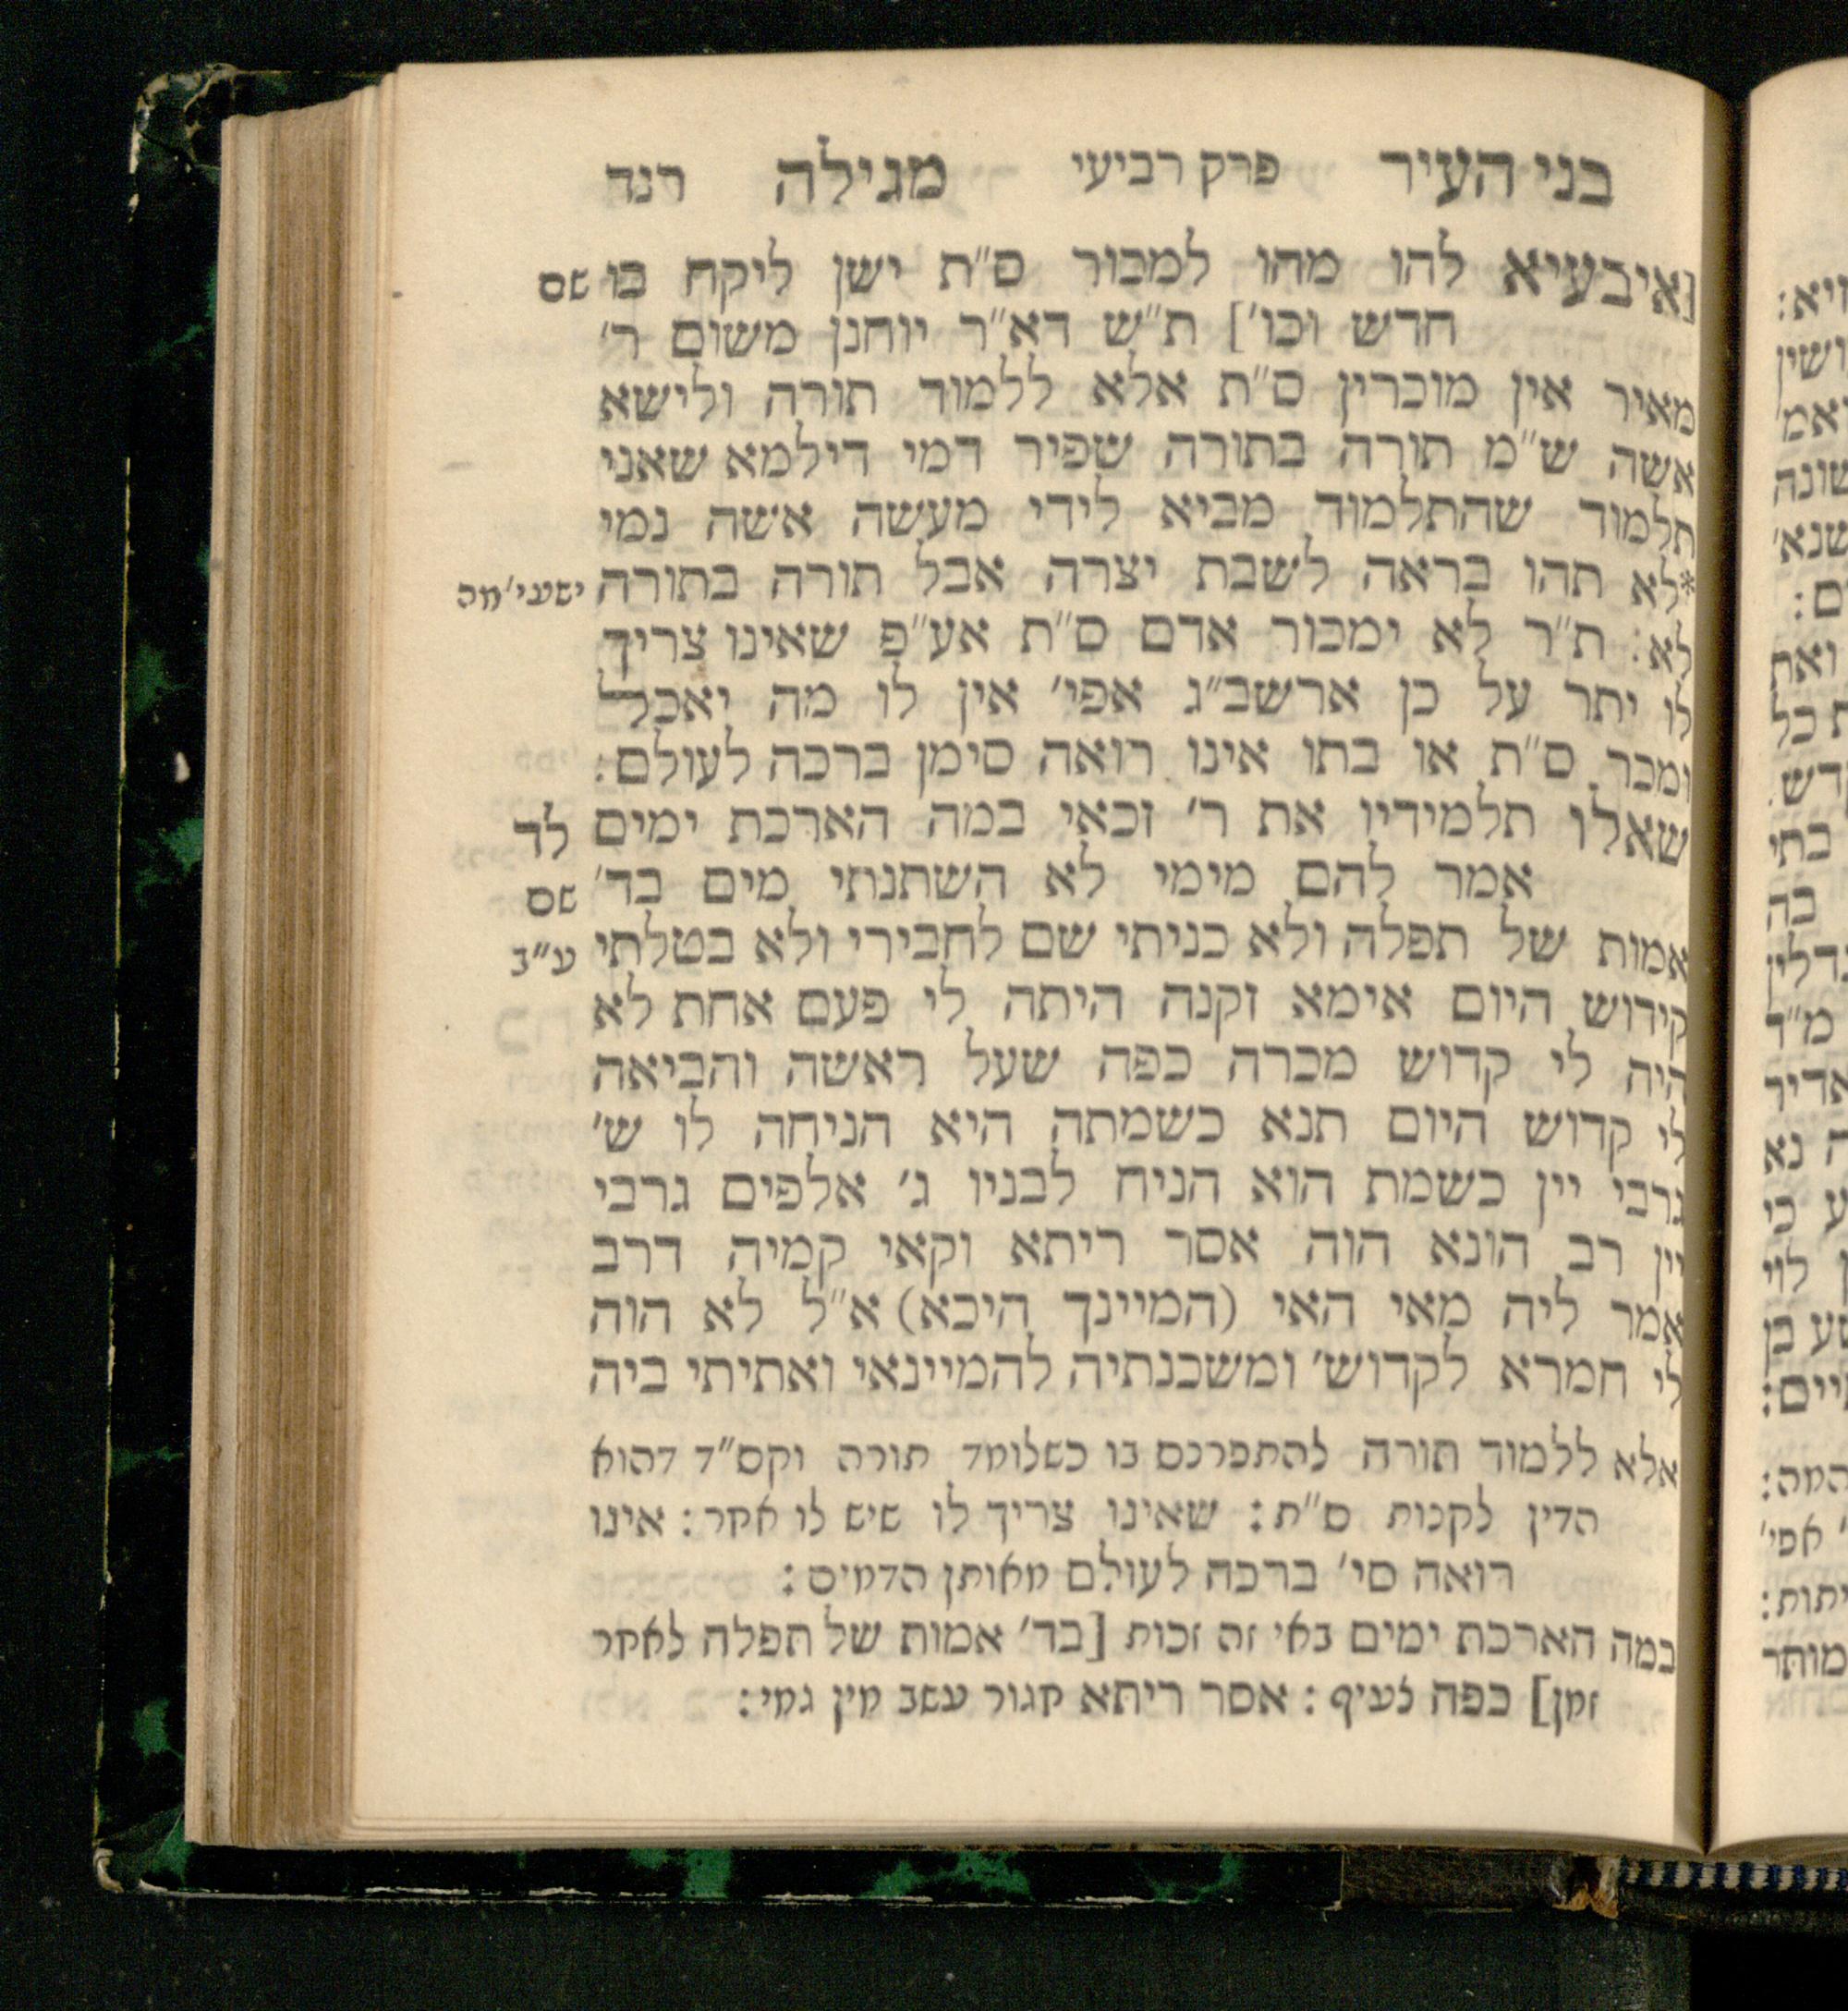 בני העיר פרק רביעי מגילה רנד
[איבעיא להו מהו למכור ס"ת ישן ליקח בו שם
חדש וכו'] ת"ש דא"ר יוחנן משום ר'
מאיר אין מוכרין ס"ת אלא ללמוד תורה ולישא
אשה ש"מ תורה בתורה שפיר דמי דילמא שאני
תלמוד שהתלמוד מביא לידי מעשה אשה נמי
*לא תהו בראה לשבת יצרה אבל תורה בתורה ישעי' מה
לא: ת"ר לא ימכור אדם ס"ת אע"פ שאינו צריך
לו יתר על כן ארשב"ג אפי' אין לו מה יאכל
ומכר ס"ת או בתו אינו רואה סימן ברכה לעולם:
שאלו תלמידיו את ר' זכאי במה הארכת ימים לד
אמר להם מימי לא השתנתי מים בד' שם
אמות של תפלה ולא כניתי שם לחבירי ולא בטלתי ע"ב
קידוש היום אימא זקנה היתה לי פעם אחת לא
היה לי קדוש מכרה כפה שעל ראשה והביאה
לי קדוש היום תנא כשמתה היא הניחה לו ש'
גרבי יין כשמת הוא הניח לבניו ג' אלפים גרבי
יין רב הונא הוה אסר ריתא וקאי קמיה דרב
אמר ליה מאי האי (המיינך היכא) א"ל לא הוה
לי חמרא לקדוש' ומשכנתיה להמיינאי ואתיתי ביה
אלא ללמוד תורה להתפרנס בו כשלומד תורה וקס"ד דהוא
הדין לקנות ס"ת: שאינו צריך לו שיש לו אחר: אינו
רואה סי' ברכה לעולם מאותן הדמים:
במה הארכת ימים באי זה זכות [בד' אמות של תפלה לאחר
זמן] כפה צעיף: אסר ריתא חגור עשב מין גמי:
ושין
שונה
ים:
ואת
ת כל
בתי
בה
מ"ד
ה נא
לוי
שע בן
אפי'
מותר